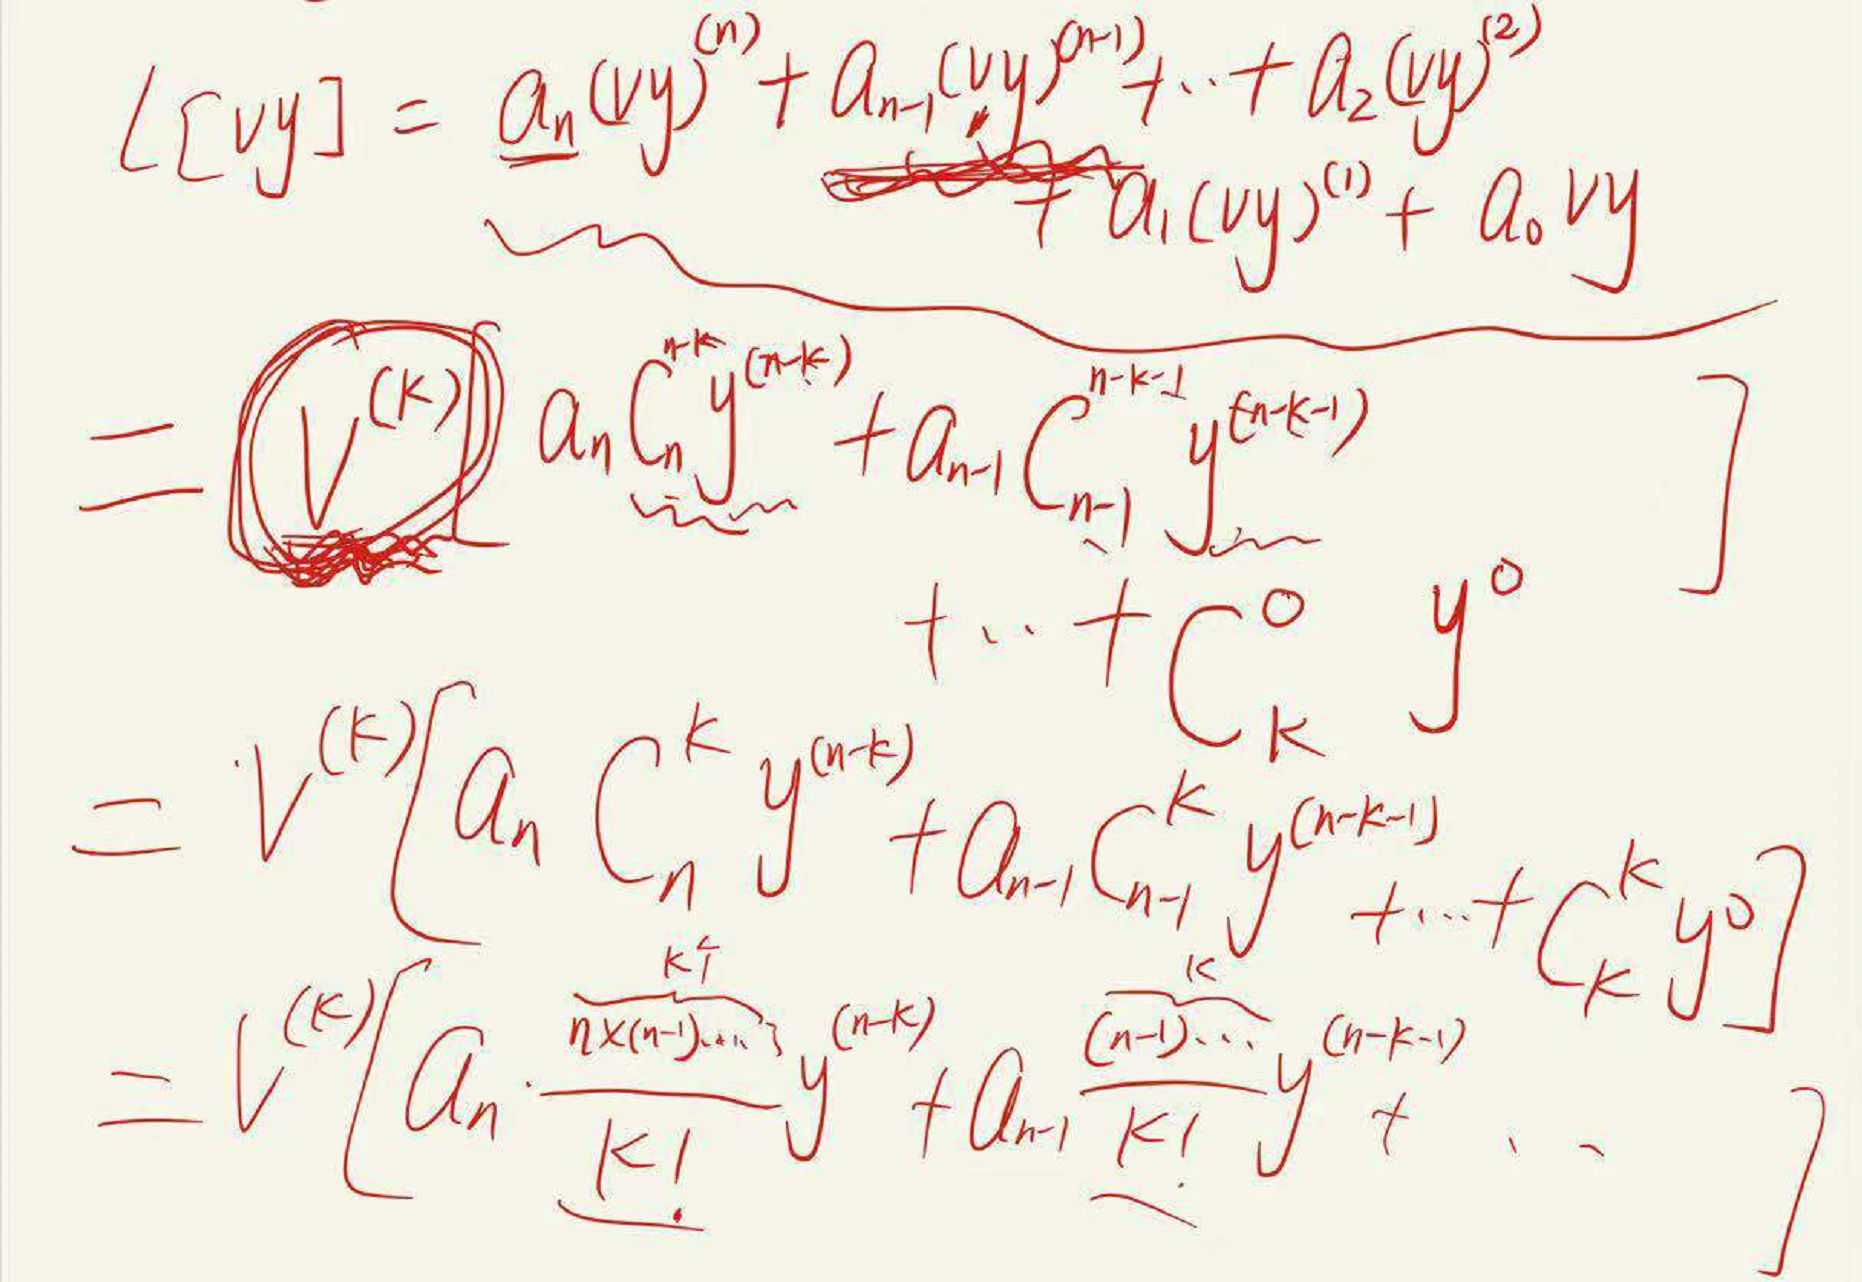 L[vy] = aₙ(vy)⁽ⁿ⁾ + aₙ₋₁(vy)⁽ⁿ⁻¹⁾ + ·· + a₂(vy)⁽²⁾
+ a₁(vy)⁽¹⁾ + a₀ vy
= V^(k) [ a_n C_n^{n-k} y^(n-k) + a_{n-1} C_{n-1}^{n-k-1} y^(n-k-1) ]
+ ·· + C_k^0 y^0
= V^(k) [ a_n C_n^k y^(n-k) + a_{n-1} C_{n-1}^k y^(n-k-1) + ··· + C_k^k y^0 ]
k个 k
= V^(k) [ a_n · n×(n-1)···· / k! y^(n-k) + a_{n-1} (n-1)··· / k! y^(n-k-1) + ·· ]